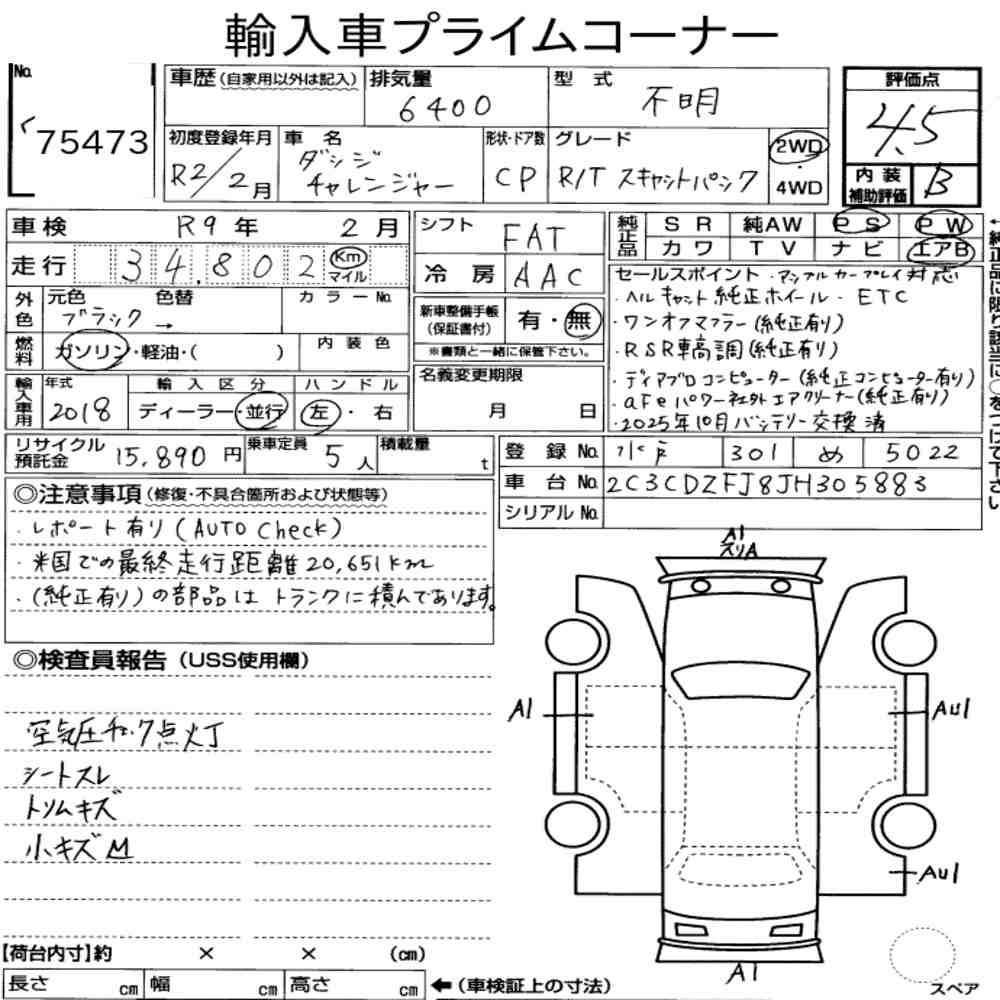 輸入車プライムコーナー
No. 75473
車歴(自家用以外は記入) 排気量 6400 型式 不明
評価点 4.5
初度登録年月 R2/2月 車名 ダッジ チャレンジャー 形状・ドア数 CP グレード R/T スキャットパック 2WD・4WD
内装補助評価 B
車検 R9年 2月
走行 34,802 Km マイル
シフト FAT
冷房 AAC
純正品 SR 純AW PS PW
カワ TV ナビ エアB
←純正品に限り該当に○をつけて下さい
外色 元色 ブラック → 色替 カラーNo.
燃料 ガソリン・軽油・( ) 内装色
新車整備手帳(保証書付) 有・無
※書類と一緒に保管下さい。
名義変更期限 月 日
輸入車用 年式 2018 輸入区分 ディーラー・並行 ハンドル 左・右
セールスポイント・アップルカープレイ対応
・ヘルキャット純正ホイール・ETC
・ワンオフマフラー(純正有り)
・RSR車高調(純正有り)
・ディアブロコンピューター(純正コンピューター有り)
・aFeパワー社外エアクリーナー(純正有り)
・2025年10月バッテリー交換済
リサイクル預託金 15,890円 乗車定員 5人 積載量 t
登録No. 水戸 301 め 5022
車台No. 2C3CDZFJ8JH305883
シリアルNo.
◎注意事項(修復・不具合箇所および状態等)
・レポート有り(AUTO Check)
・米国での最終走行距離20,651km
・(純正有り)の部品はトランクに積んであります。
◎検査員報告(USS使用欄)
空気圧チェック点灯
シートスレ
トリムキズ
小キズM
A1
スリA
A1
AU1
AU1
A1
スペア
【荷台内寸】約 × × (cm)
長さ cm 幅 cm 高さ cm ←(車検証上の寸法)